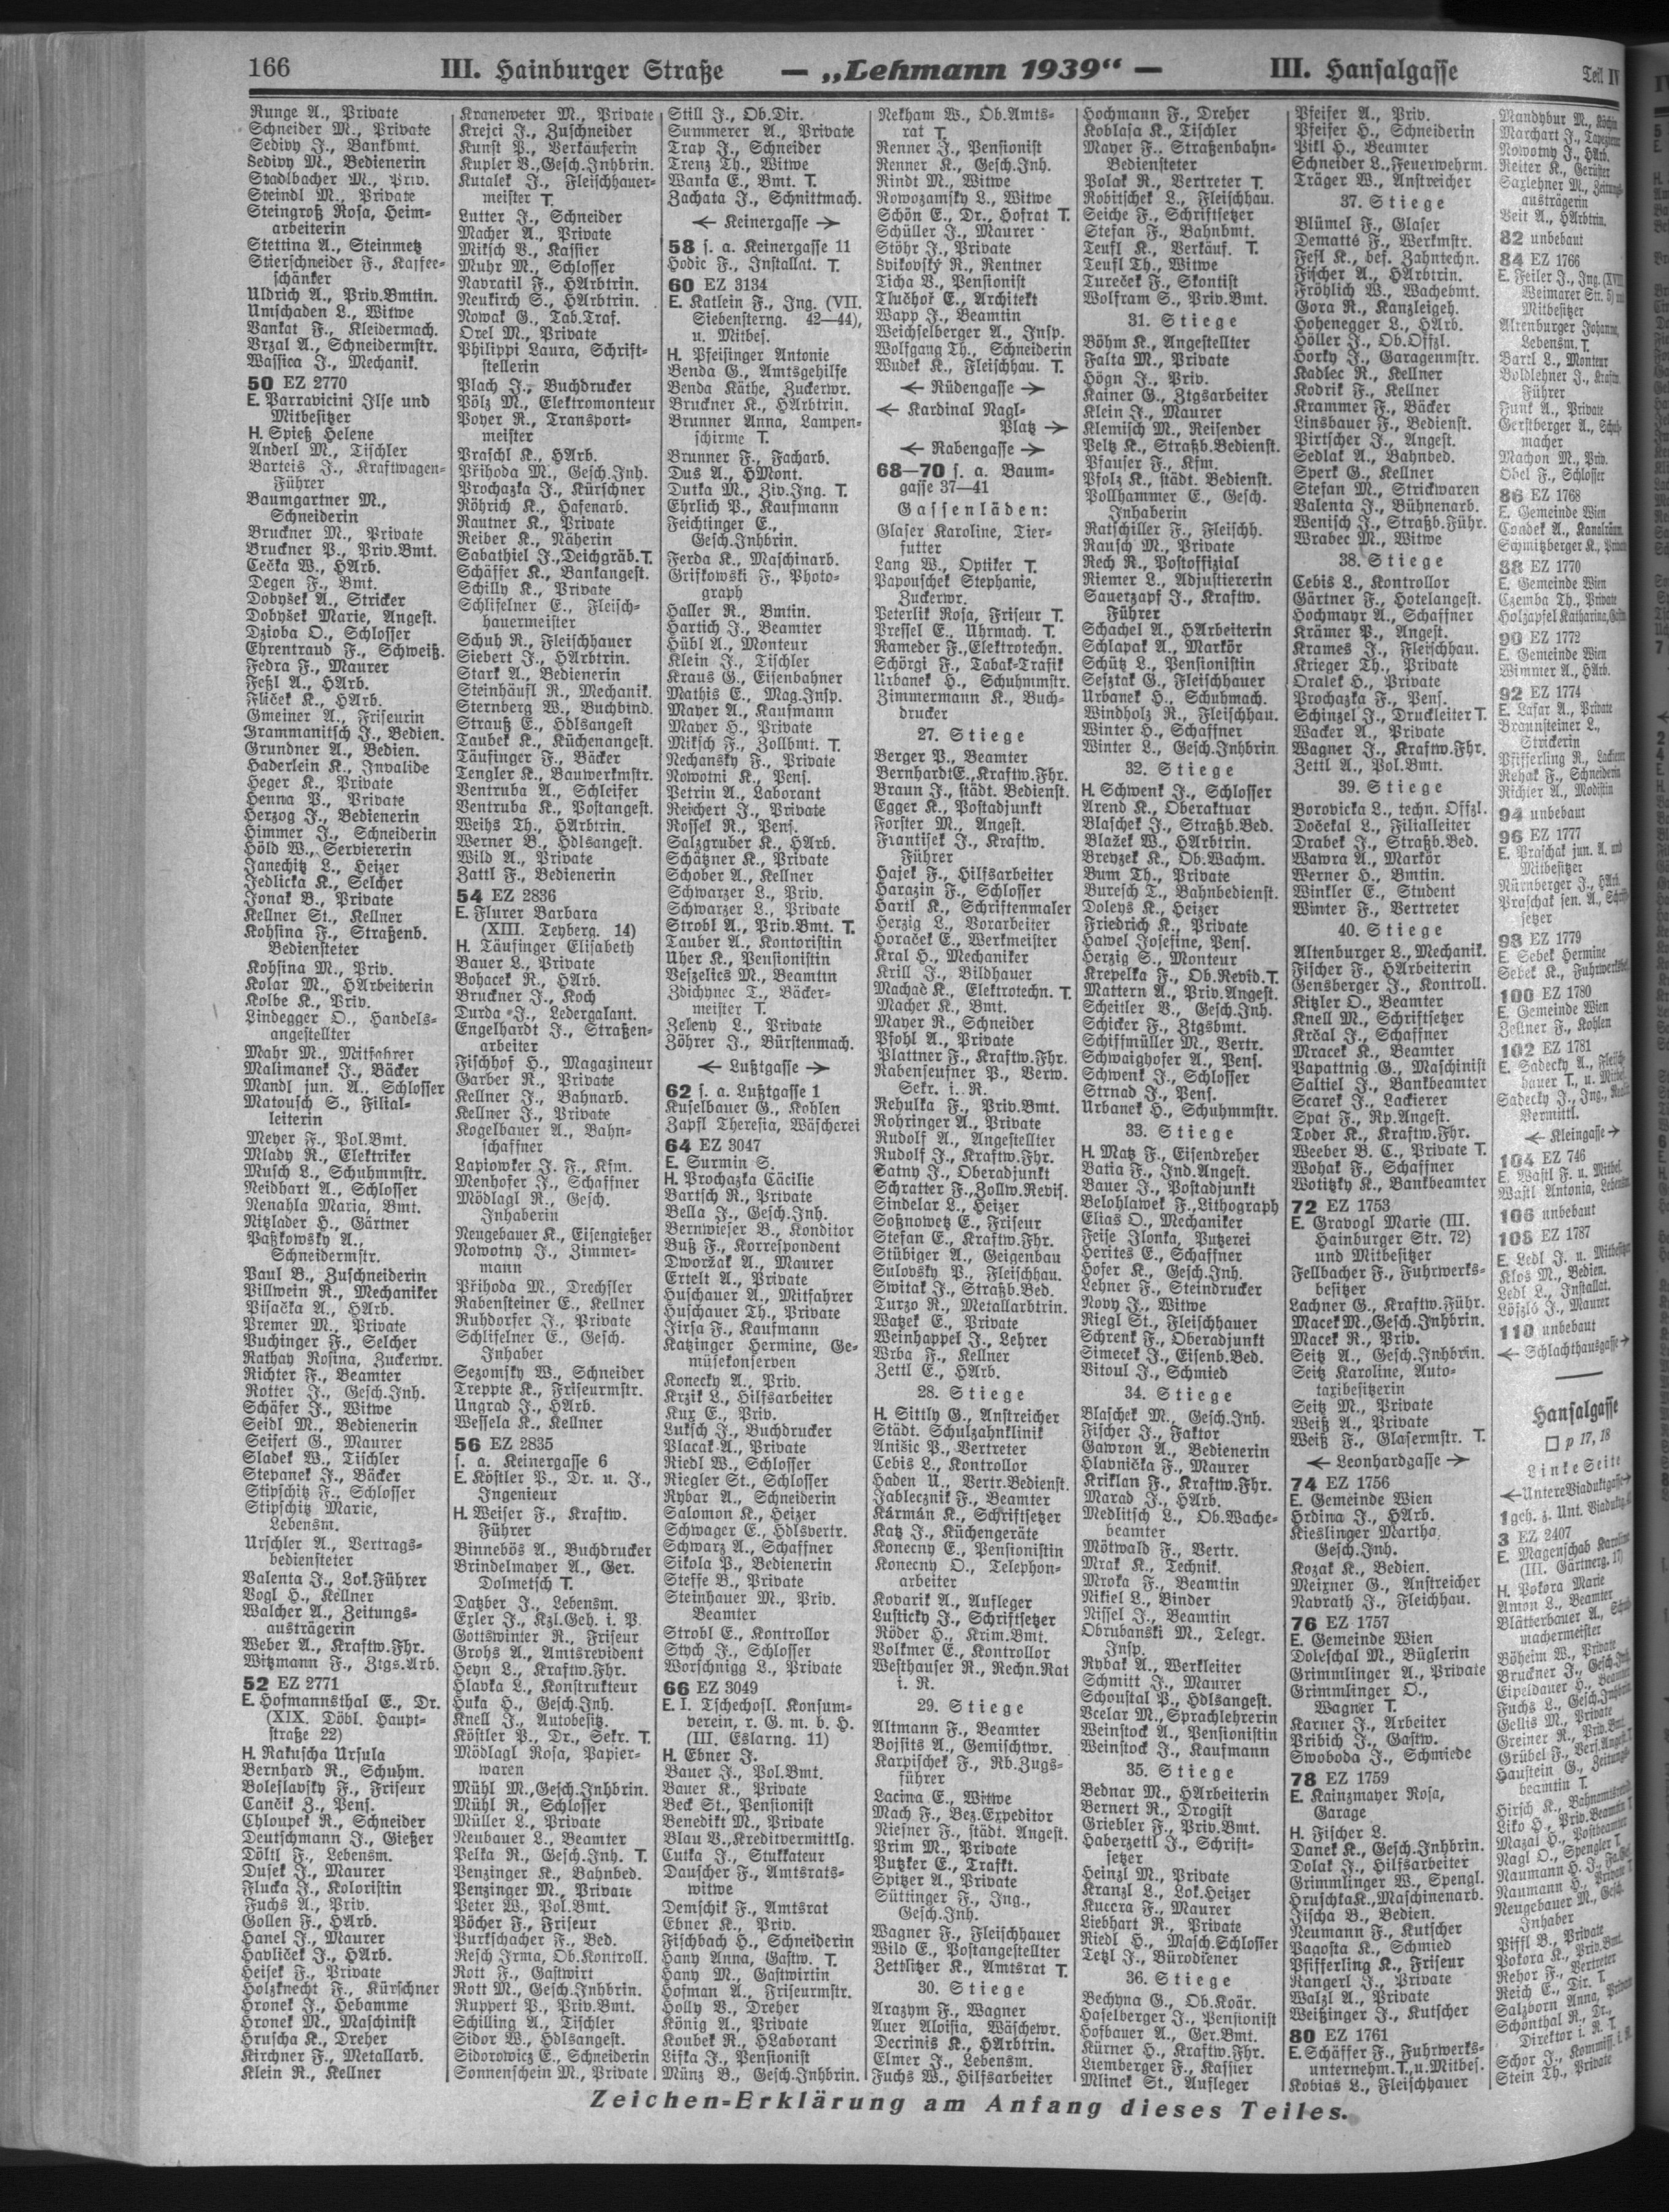 166
III. Hainburger Straße
— „Lehmann 1939“ —
III. Hansalgasse
Teil IV
Runge A., Private
Schneider M., Private
Sedivy J., Bankbmt.
Sedivy M., Bedienerin
Stadlbacher M., Priv.
Steindl M., Private
Steingroß Rosa, Heim-
arbeiterin
Stettina A., Steinmetz
Stierschneider F., Kaffee-
schänker
Uldrich A., Priv.Bmtin.
Umschaden L., Witwe
Vankat F., Kleidermach.
Vrzal A., Schneidermstr.
Wassica J., Mechanik.
50 EZ 2770
E. Parravicini Ilse und
Mitbesitzer
H. Spieß Helene
Anderl M., Tischler
Barteis J., Kraftwagen-
Führer
Baumgartner M.,
Schneiderin
Bruckner M., Private
Bruckner P., Priv.Bmt.
Cečka W., HArb.
Degen F., Bmt.
Dobyšek A., Stricker
Dobyšek Marie, Angest.
Dzioba O., Schlosser
Ehrentraud F., Schweiß.
Fedra F., Maurer
Feßl A., HArb.
Fliček K., HArb.
Gmeiner A., Friseurin
Grammanitsch J., Bedien.
Grundner A., Bedien.
Haderlein K., Invalide
Heger K., Private
Henna P., Private
Herzog J., Bedienerin
Himmer J., Schneiderin
Höld W., Serviererin
Janechitz L., Heizer
Jedlicka K., Selcher
Jonak B., Private
Kellner St., Kellner
Kohsina F., Straßenb.
Bediensteter
Kohsina M., Priv.
Kolar M., HArbeiterin
Kolbe K., Priv.
Lindegger O., Handels-
angestellter
Mahr M., Mitfahrer
Malimanek J., Bäcker
Mandl jun. A., Schlosser
Matousch S., Filial-
leiterin
Meyer F., Pol.Bmt.
Mlady R., Elektriker
Musch L., Schuhmmstr.
Neidhart A., Schlosser
Nenahla Maria, Bmt.
Nitzlader H., Gärtner
Paßkowsky A.,
Schneidermstr.
Paul B., Zuschneiderin
Pillwein R., Mechaniker
Pisačka A., HArb.
Premer M., Private
Puchinger F., Selcher
Rathay Rosina, Zuckerwr.
Richter F., Beamter
Rotter J., Gesch.Inh.
Schäfer J., Witwe
Seidl M., Bedienerin
Seifert G., Maurer
Sladek W., Tischler
Stepanek J., Bäcker
Stipschitz F., Schlosser
Stipschitz Marie,
Lebensm.
Urschler A., Vertrags-
bediensteter
Valenta J., Lok.Führer
Vogl H., Kellner
Walcher A., Zeitungs-
austrägerin
Weber A., Kraftw.Fhr.
Witzmann F., Ztgs.Arb.
52 EZ 2771
E. Hofmannsthal E., Dr.
(XIX. Döbl. Haupt-
straße 22)
H. Rakuscha Ursula
Bernhard R., Schuhm.
Boleslavsky F., Friseur
Cančik Z., Pens.
Chloupek R., Schneider
Deutschmann J., Gießer
Döltl F., Lebensm.
Dusek J., Maurer
Flucka J., Koloristin
Fuchs A., Priv.
Gollen F., HArb.
Hanel J., Maurer
Havliček J., HArb.
Heisek F., Private
Holzknecht F., Kürschner
Hronek J., Hebamme
Hronek M., Maschinist
Hruscha K., Dreher
Kirchner F., Metallarb.
Klein R., Kellner
Kraneweter M., Private
Krejci J., Zuschneider
Kunst P., Verkäuferin
Kupler B., Gesch.Inhbrin.
Kutalek J., Fleischhauer-
meister T.
Lutter J., Schneider
Macher A., Private
Miksch B., Kassier
Muhr M., Schlosser
Navratil F., HArbtrin.
Neukirch S., HArbtrin.
Nowak G., Tab.Traf.
Orel M., Private
Philippi Laura, Schrift-
stellerin
Plach J., Buchdrucker
Pölz M., Elektromonteur
Poyer R., Transport-
meister
Praschl K., HArb.
Přihoda M., Gesch.Inh.
Prochazka J., Kürschner
Röhrich K., Hafenarb.
Rautner K., Private
Reiber K., Näherin
Sabathiel J., Deichgräb. T.
Schäffer K., Bankangest.
Schilly K., Private
Schlifelner E., Fleisch-
hauermeister
Schuh R., Fleischhauer
Siebert J., HArbtrin.
Stark A., Bedienerin
Steinhäufl R., Mechanik.
Sternberg W., Buchbind.
Strauß E., Hdlsangest
Taubek K., Küchenangest.
Täufinger F., Bäcker
Tengler K., Bauwerkmstr.
Ventruba A., Schleifer
Ventruba K., Postangest.
Weihs Th., HArbtrin.
Werner B., Hdlsangest.
Wild A., Private
Zattl F., Bedienerin
54 EZ 2836
E. Flurer Barbara
(XIII. Teyberg. 14)
H. Täufinger Elisabeth
Bauer L., Private
Bohacek R., HArb.
Bruckner J., Koch
Durda J., Ledergalant.
Engelhardt J., Straßen-
arbeiter
Fischhof H., Magazineur
Garber R., Private
Kellner J., Bahnarb.
Kellner J., Private
Kogelbauer A., Bahn-
schaffner
Lapiowker J. F., Kfm.
Menhofer J., Schaffner
Mödlagl R., Gesch.
Inhaberin
Neugebauer K., Eisengießer
Nowotny J., Zimmer-
mann
Přihoda M., Drechsler
Rabensteiner E., Kellner
Ruhdorfer J., Private
Schlifelner E., Gesch.
Inhaber
Sezomsky W., Schneider
Treppte K., Friseurmstr.
Ungrad J., HArb.
Wessela K., Kellner
56 EZ 2835
s. a. Keinergasse 6
E. Köstler P., Dr. u. J.,
Ingenieur
H. Weiser F., Kraftw.
Führer
Binnebös A., Buchdrucker
Brindelmayer A., Ger.
Dolmetsch T.
Datzber J., Lebensm.
Exler J., Kzl.Geh. i. P.
Gottswinter R., Friseur
Grohs A., Amtsrevident
Heyn L., Kraftw.Fhr.
Hlavka L., Konstrukteur
Huka H., Gesch.Inh.
Knell J., Autobesitz.
Köstler P., Dr., Sekr. T.
Mödlagl Rosa, Papier-
waren
Mühl M., Gesch.Inhbrin.
Mühl R., Schlosser
Müller L., Private
Neubauer L., Beamter
Pelka R., Gesch.Inh. T.
Penzinger K., Bahnbed.
Penzinger M., Private
Peter W., Pol.Bmt.
Pöcher F., Friseur
Purkschacher F., Bed.
Resch Irma, Ob.Kontroll.
Rott F., Gastwirt
Rott M., Gesch.Inhbrin.
Ruppert P., Priv.Bmt.
Schilling A., Tischler
Sidor W., Hdlsangest.
Sidorowicz E., Schneiderin
Sonnenschein M., Private
Still J., Ob.Dir.
Summerer A., Private
Trap J., Schneider
Trenz Th., Witwe
Wanka E., Bmt. T.
Zachata J., Schnittmach.
← Keinergasse →
58 s. a. Keinergasse 11
Hodic F., Installat. T.
60 EZ 3134
E. Katlein F., Ing. (VII.
Siebensterng. 42—44),
u. Mitbes.
H. Pfeisinger Antonie
Benda G., Amtsgehilfe
Benda Käthe, Zuckerwr.
Bruckner K., HArbtrin.
Brunner Anna, Lampen-
schirme T.
Brunner F., Facharb.
Dus A., HMont.
Dutka M., Ziv.Ing. T.
Ehrlich P., Kaufmann
Feichtinger E.,
Gesch.Inhbrin.
Ferda K., Maschinarb.
Grifkowski F., Photo-
graph
Haller R., Bmtin.
Hartich J., Beamter
Hübl A., Monteur
Klein J., Tischler
Kraus G., Eisenbahner
Mathis E., Mag.Insp.
Mayer A., Kaufmann
Mayer H., Private
Miksch F., Zollbmt. T.
Nechansky F., Private
Nowotni K., Pens.
Petrin A., Laborant
Reichert J., Private
Rossel R., Pens.
Salzgruber K., HArb.
Schätzner K., Private
Schober A., Kellner
Schwarzer L., Priv.
Schwarzer L., Private
Strobl A., Priv.Bmt. T.
Tauber A., Kontoristin
Uher K., Pensionistin
Veszelics M., Beamtin
Zdichynec T., Bäcker-
meister T.
Zeleny L., Private
Zöhrer J., Bürstenmach.
← Lußtgasse →
62 s. a. Lußtgasse 1
Kuselbauer G., Kohlen
Zapfl Theresia, Wäscherei
64 EZ 3047
E. Surmin S.
H. Prochazka Cäcilie
Bartsch R., Private
Bella J., Gesch.Inh.
Bernwieser B., Konditor
Buß F., Korrespondent
Dworžak A., Maurer
Ertelt A., Private
Huschauer A., Mitfahrer
Huschauer Th., Private
Jirsa F., Kaufmann
Katzinger Hermine, Ge-
müsekonserven
Konecky A., Priv.
Krzik L., Hilfsarbeiter
Kux E., Priv.
Luksch J., Buchdrucker
Placak A., Private
Riedl W., Schlosser
Riegler St., Schlosser
Rybar A., Schneiderin
Salomon K., Heizer
Schwager E., Hdlsvertr.
Schwarz A., Schaffner
Sikola P., Bedienerin
Steffe B., Private
Steinhauer M., Priv.
Beamter
Strobl E., Kontrollor
Stych J., Schlosser
Worschnigg L., Private
66 EZ 3049
E. I. Tschechosl. Konsum-
verein, r. G. m. b. H.
(III. Eslarng. 11)
H. Ebner J.
Bauer J., Pol.Bmt.
Bauer K., Private
Beck St., Pensionist
Benedikt M., Private
Blau B., Kreditvermittlg.
Cutka J., Stukkateur
Dauscher F., Amtsrats-
witwe
Demschik F., Amtsrat
Ebner K., Priv.
Fischbach H., Schneiderin
Hany Anna, Gastw. T.
Hany M., Gastwirtin
Hofman A., Friseurmstr.
Holly B., Dreher
König A., Private
Koubek R., HLaborant
Lifka J., Pensionist
Münz B., Gesch.Inhbrin.
Nekham W., Ob.Amts-
rat T.
Renner J., Pensionist
Renner K., Gesch.Inh.
Rindt M., Witwe
Rowozamsky L., Witwe
Schön E., Dr., Hofrat T.
Schüller J., Maurer
Stöhr J., Private
Svikovský R., Rentner
Ticha B., Pensionist
Tlučhoř E., Architekt
Wapp J., Beamtin
Weichselberger A., Insp.
Wolfgang Th., Schneiderin
Wudek K., Fleischhau. T.
← Rüdengasse →
← Kardinal Nagl-
Platz →
← Rabengasse →
68—70 s. a. Baum-
gasse 37—41
Gassenläden:
Glaser Karoline, Tier-
futter
Lang W., Optiker T.
Papouschek Stephanie,
Zuckerwr.
Peterlik Rosa, Friseur T.
Pressel E., Uhrmach. T.
Rameder F., Elektrotechn.
Schörgi F., Tabak-Trafik
Urbanek H., Schuhmmstr.
Zimmermann K., Buch-
drucker
27. Stiege
Berger P., Beamter
Bernhardt E., Kraftw.Fhr.
Braun J., städt. Bedienst.
Egger K., Postadjunkt
Forster M., Angest.
Frantisek J., Kraftw.
Führer
Hajek F., Hilfsarbeiter
Harazin F., Schlosser
Hartl K., Schriftenmaler
Herzig L., Vorarbeiter
Horaček E., Werkmeister
Kral H., Mechaniker
Krill J., Bildhauer
Machač K., Elektrotechn. T.
Macher K., Bmt.
Mayer R., Schneider
Pfohl A., Private
Plattner F., Kraftw.Fhr.
Rabenseufner P., Verw.
Sekr. i. R.
Rehulka F., Priv.Bmt.
Rohringer A., Private
Rudolf A., Angestellter
Rudolf J., Kraftw.Fhr.
Satny J., Oberadjunkt
Schratter F., Zollw.Revis.
Sindelar L., Heizer
Soßnowetz E., Friseur
Stefan E., Kraftw.Fhr.
Stübiger A., Geigenbau
Sulovsky P., Fleischhau.
Switak J., Straßb.Bed.
Turzo R., Metallarbtrin.
Watzek E., Private
Weinhappel J., Lehrer
Wrba F., Kellner
Zettl E., HArb.
28. Stiege
H. Sittly G., Anstreicher
Städt. Schulzahnklinik
Anišic P., Vertreter
Cebis L., Kontrollor
Haden U., Vertr.Bedienst.
Jablecznik F., Beamter
Kármán K., Schriftsetzer
Katz J., Küchengeräte
Konecny E., Pensionistin
Konecny O., Telephon-
arbeiter
Kovarik A., Aufleger
Lusticky J., Schriftsetzer
Röder H., Krim.Bmt.
Volkmer E., Kontrollor
Westhauser R., Rechn.Rat
i. R.
29. Stiege
Altmann F., Beamter
Bojsits A., Gemischtwr.
Karpischek F., Rb.Zugs-
führer
Lacina E., Witwe
Mach F., Bez.Expeditor
Niesner F., städt. Angest.
Prim M., Private
Putzker E., Trafkt.
Spitzer A., Private
Süttinger F., Ing.,
Gesch.Inh.
Wagner F., Fleischhauer
Wild E., Postangestellter
Zettlitzer K., Amtsrat T.
30. Stiege
Arazym F., Wagner
Auer Aloisia, Wäschewr.
Decrinis K., HArbtrin.
Elmer J., Lebensm.
Fuchs W., Hilfsarbeiter
Hochmann F., Dreher
Koblasa K., Tischler
Mayer F., Straßenbahn-
Bediensteter
Polak R., Vertreter T.
Robitschek L., Fleischhau.
Seiche F., Schriftsetzer
Stefan F., Bahnbmt.
Teufl K., Verkäuf. T.
Teufl Th., Witwe
Tureček F., Skontist
Wolfram S., Priv.Bmt.
31. Stiege
Böhm K., Angestellter
Falta M., Private
Högn J., Priv.
Kainer G., Ztgsarbeiter
Klein J., Maurer
Klemisch M., Reisender
Peltz K., Straßb.Bedienst.
Pfauser F., Kfm.
Pfolz K., städt. Bedienst.
Pollhammer E., Gesch.
Inhaberin
Ratschiller F., Fleischh.
Rausch M., Private
Rech R., Postoffizial
Riemer L., Adjustiererin
Sauerzapf J., Kraftw.
Führer
Schachel A., HArbeiterin
Schlapak A., Markör
Schütz L., Pensionistin
Sesztak G., Fleischhauer
Urbanek H., Schuhmach.
Windholz R., Fleischhau.
Winter H., Schaffner
Winter L., Gesch.Inhbrin
32. Stiege
H. Schwenk J., Schlosser
Arend K., Oberaktuar
Blaschek J., Straßb.Bed.
Blažek W., HArbtrin.
Brevzek K., Ob.Wachm.
Bum Th., Private
Buresch T., Bahnbedienst.
Doleys K., Heizer
Friedrich K., Private
Hawel Josefine, Pens.
Herzig S., Monteur
Krepelka F., Ob.Revid. T.
Mattern A., Priv.Angest.
Scheitler B., Gesch.Inh.
Schicker F., Ztgsbmt.
Schiffmüller M., Vertr.
Schwaighofer A., Pens.
Schwenk J., Schlosser
Strnad J., Pens.
Urbanek H., Schuhmmstr.
33. Stiege
H. Matz F., Eisendreher
Batia F., Ind.Angest.
Bauer J., Postadjunkt
Belohlawek F., Lithograph
Elias O., Mechaniker
Feise Ilonka, Putzerei
Herites E., Schaffner
Hofer K., Gesch.Inh.
Lehner F., Steindrucker
Novy J., Witwe
Riegl St., Fleischhauer
Schrenk F., Oberadjunkt
Simecek J., Eisenb.Bed.
Vitoul J., Schmied
34. Stiege
Blaschek M., Gesch.Inh.
Fischer J., Faktor
Gawron A., Bedienerin
Hlavnička F., Maurer
Kriklan F., Kraftw.Fhr.
Marad J., HArb.
Medlitsch L., Ob.Wache-
beamter
Mötwald F., Vertr.
Mrak K., Technik.
Mroka F., Beamtin
Nikiel L., Binder
Nissel J., Beamtin
Obrubanski M., Telegr.
Insp.
Rybak A., Werkleiter
Schmitt J., Maurer
Schoustal P., Hdlsangest.
Vcelar M., Sprachlehrerin
Weinstock A., Pensionistin
Weinstock J., Kaufmann
35. Stiege
Bednar M., HArbeiterin
Bernert R., Drogist
Griebler F., Priv.Bmt.
Haberzettl J., Schrift-
setzer
Heinzl M., Private
Kranzl L., Lok.Heizer
Kucera F., Maurer
Liebhart R., Private
Riedl H., Masch.Schlosser
Tetzl J., Bürodiener
36. Stiege
Bechyna G., Ob.Koär.
Haselberger J., Pensionist
Hofbauer A., Ger.Bmt.
Kürner H., Kraftw.Fhr.
Liemberger F., Kassier
Mlinek St., Aufleger
Pfeifer A., Priv.
Pfeifer H., Schneiderin
Pikl H., Beamter
Schneider L., Feuerwehrm.
Träger W., Anstreicher
37. Stiege
Blümel F., Glaser
Dematté F., Werkmstr.
Fesl K., bef. Zahntechn.
Fischer A., HArbtrin.
Fröhlich W., Wachebmt.
Gora R., Kanzleigeh.
Hohenegger L., HArb.
Höller J., Ob.Offzl.
Horky J., Garagenmstr.
Kadlec R., Kellner
Kodrik F., Kellner
Krammer F., Bäcker
Linsbauer F., Bedienst.
Pirtscher J., Angest.
Sedlak A., Bahnbed.
Sperk G., Kellner
Stefan M., Strickwaren
Valenta J., Bühnenarb.
Wenisch J., Straßb.Führ.
Wrabec M., Witwe
38. Stiege
Cebis L., Kontrollor
Gärtner F., Hotelangest.
Hochmayr A., Schaffner
Krämer P., Angest.
Krames J., Fleischhau.
Krieger Th., Private
Oralek H., Private
Prochazka F., Pens.
Schinzel J., Druckleiter T.
Wacker A., Private
Wagner J., Kraftw.Fhr.
Zettl A., Pol.Bmt.
39. Stiege
Borovicka L., techn. Offzl.
Dočekal L., Filialleiter
Drabek J., Straßb.Bed.
Wawra A., Markör
Werner H., Bmtin.
Winkler E., Student
Winter F., Vertreter
40. Stiege
Altenburger L., Mechanik.
Fischer F., HArbeiterin
Gensberger J., Kontroll.
Kitzler O., Beamter
Knell M., Schriftsetzer
Krčal J., Schaffner
Mracek K., Beamter
Papattnig G., Maschinist
Saltiel J., Bankbeamter
Scarek J., Lackierer
Spat F., Rp.Angest.
Toder K., Kraftw.Fhr.
Weeber B. C., Private T.
Wohak F., Schaffner
Wotitzky K., Bankbeamter
72 EZ 1753
E. Gravogl Marie (III.
Hainburger Str. 72)
und Mitbesitzer
Fellbacher F., Fuhrwerks-
besitzer
Lachner G., Kraftw.Führ.
Macek M., Gesch.Inhbrin.
Macek R., Priv.
Seitz A., Gesch.Inhbrin.
Seitz Karoline, Auto-
taxibesitzerin
Seitz M., Private
Weiß A., Private
Weiß F., Glasermstr. T.
← Leonhardgasse →
74 EZ 1756
E. Gemeinde Wien
Hrdina J., HArb.
Kieslinger Martha,
Gesch.Inh.
Kozak K., Bedien.
Meixner G., Anstreicher
Navrath J., Fleichhau.
76 EZ 1757
E. Gemeinde Wien
Doleschal M., Büglerin
Grimmlinger A., Private
Grimmlinger O.,
Wagner T.
Karner J., Arbeiter
Pribich J., Gastw.
Swoboda J., Schmiede
78 EZ 1759
E. Kainzmayer Rosa,
Garage
H. Fischer L.
Danek K., Gesch.Inhbrin.
Dolak J., Hilfsarbeiter
Grimmlinger W., Spengl.
Hruschka K., Maschinenarb.
Jischa B., Bedien.
Neumann F., Kutscher
Pagosta K., Schmied
Pfifferling K., Friseur
Rangerl J., Private
Walzl A., Private
Weißinger J., Kutscher
80 EZ 1761
E. Schäffer F., Fuhrwerks-
unternehm. T., u. Mitbes.
Kobias L., Fleischhauer
Mandybur M., Köchin
Marchart J., Tapezierer
Nowotny J., HArb.
Reiter K., Gerüster
Saxlehner M., Zeitungs-
austrägerin
Veit A., HArbtrin.
82 unbebaut
84 EZ 1766
E. Feiler J., Ing. (XVIII.
Weimarer Str. 5) und
Mitbesitzer
Altenburger Johanna,
Lebensm. T.
Bartl L., Monteur
Boldlehner J., Kraftw.
Führer
Funk A., Private
Gerstberger A., Schuh-
macher
Machon M., Priv.
Obel F., Schlosser
86 EZ 1768
E. Gemeinde Wien
Condek A., Kanalräum.
Schmitzberger K., Private
88 EZ 1770
E. Gemeinde Wien
Czemba Th., Private
Holzapfel Katharina,
90 EZ 1772
E. Gemeinde Wien
Wimmer A., HArb.
92 EZ 1774
E. Lafar A., Private
Braunsteiner L.,
Strickerin
Pfifferling R., Lackierer
Rehak F., Schneiderin
Richter A., Modistin
94 unbebaut
96 EZ 1777
E. Praschak jun. A. und
Mitbesitzer
Nürnberger J., HArb.
Praschak sen. A., Schrift-
setzer
98 EZ 1779
E. Sebek Hermine
Sebek K., Fuhrwerksbes.
100 EZ 1780
E. Gemeinde Wien
Zellner F., Kohlen
102 EZ 1781
E. Sadecky A., Fleisch-
hauer T., u. Mitbes.
Sadecky J., Ing.,
Vermittl.
← Kleingasse →
104 EZ 746
E. Wastl F. u. Mitbes.
Wastl Antonia, Lebensm.
106 unbebaut
108 EZ 1787
E. Ledl J. u. Mitbesitzer
Klos M., Bedien.
Ledl L., Installat.
Lößzló J., Maurer
110 unbebaut
← Schlachthausgasse →
Hansalgasse
□ p 17, 18
Linke Seite
← Untere Viaduktgasse →
1 geh. z. Unt. Viaduktg.
3 EZ 2407
E. Magenschab Karoline
(III. Gärtnerg. 17)
H. Pokora Marie
Amon L., Beamter
Blätterbauer A., Schuh-
machermeister
Böheim W., Private
Bruckner J., Gesch.Inh.
Eipeldauer H., Beamter
Fuchs L., Gesch.Inhbrin.
Gellis M., Private
Greiner R., Priv.Bmt.
Grübel F., Vers.Angest. T.
Haustein G., Zeitungs-
beamtin T.
Hirsch K.,
Liko H., Priv.Beamtin T.
Mazal H., Postbeamter
Nagl O., Spengler T.
Naumann H. J.,
Naumann H., Private T.
Neugebauer M., Gesch.
Inhaber
Piffl B., Private
Pokora K., Priv.Bmt.
Rehor F., Vertreter
Reich E., Dir. T.
Salzborn Anna, Private
Schönthal R., Dr.,
Direktor i. R. T.
Schor J., Kommiss. i. R.
Stein Th., Private
Zeichen-Erklärung am Anfang dieses Teiles.